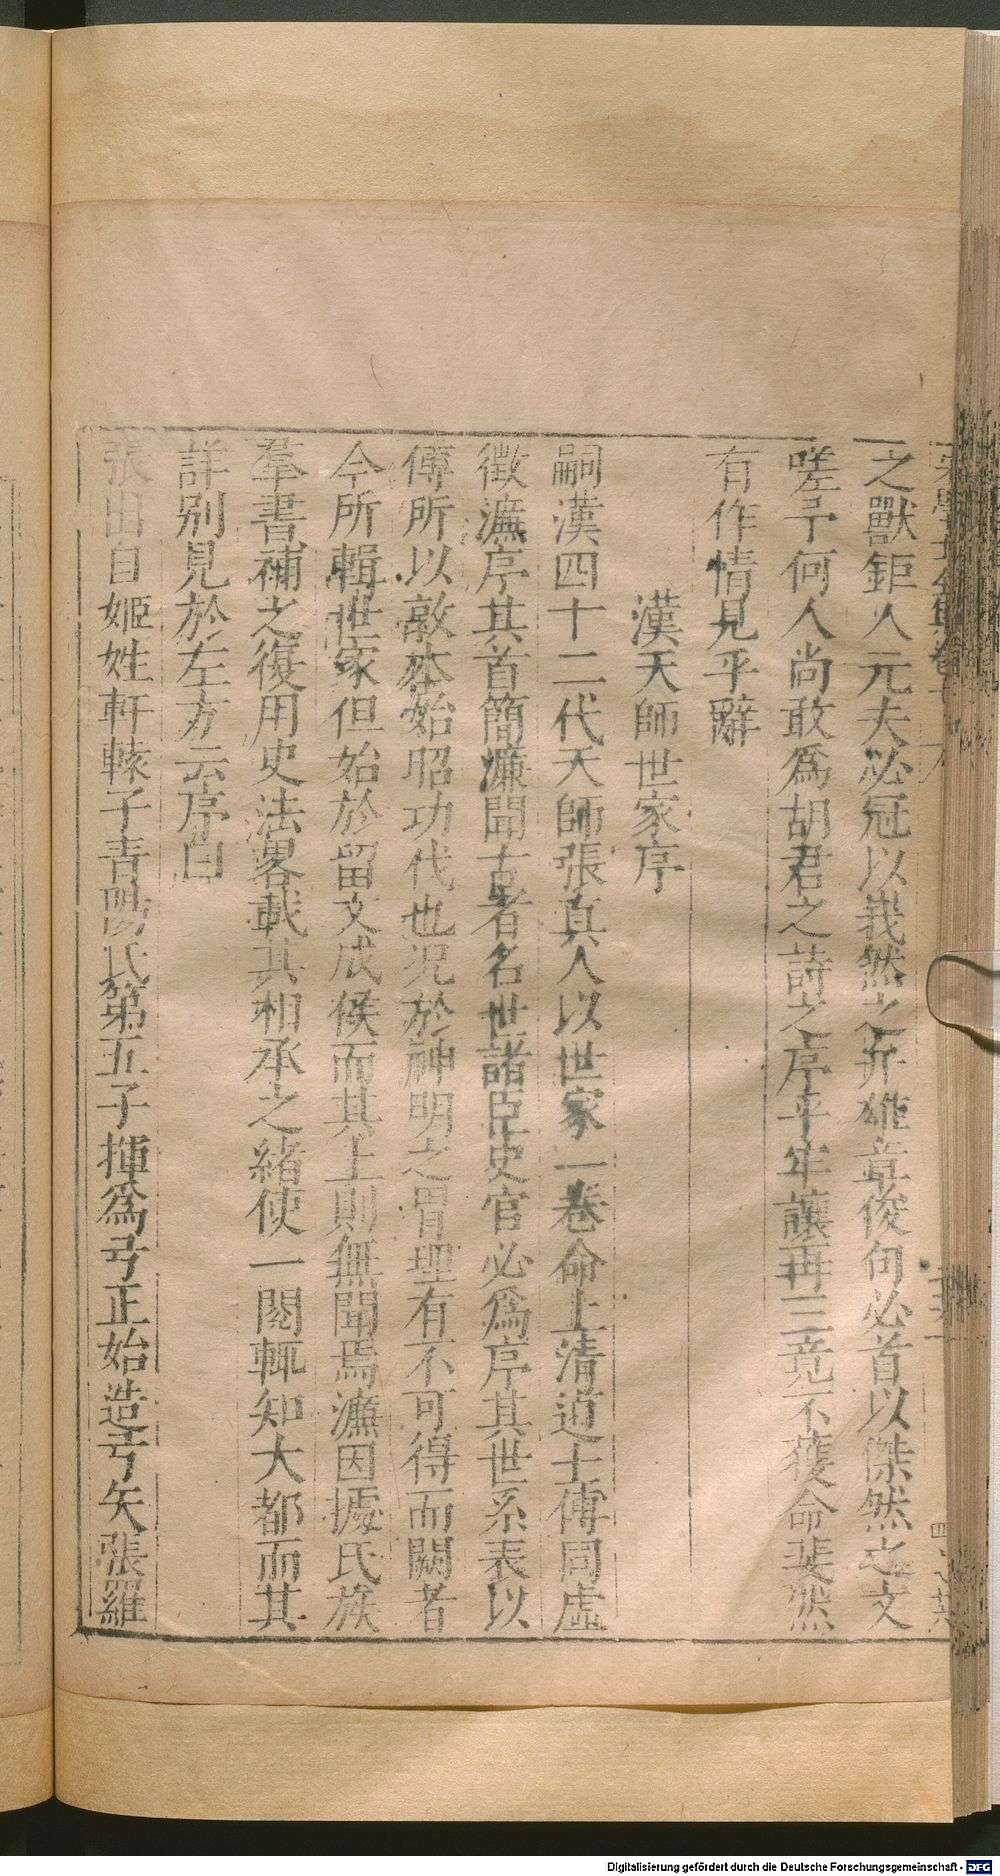 之獸鉅人元夫必冠以峩然之弁雄章俊句必首以傑然之文
嗟予何人尚敢爲胡君之詩之序乎牢讓再三竟不獲命斐然
有作情見乎辭
漢天師世家序
嗣漢四十二代天師張真人以世家一卷命上清道士傅同虛
徵濂序其首簡濂聞古者名世諸臣史官必爲序其世系表以
傳所以敦本始昭功代也况於神明之胄理有不可得而闕者
今所輯世家但始於留文成侯而其上則無聞焉濂因據氏族
羣書補之復用史法畧載其相承之緒使一閱輒知大都而其
詳别見於左方云序曰
張出自姬姓軒轅子青陽氏第五子揮爲弓正始造弓矢張羅
Digitalisierung gefördert durch die Deutsche Forschungsgemeinschaft - DFG